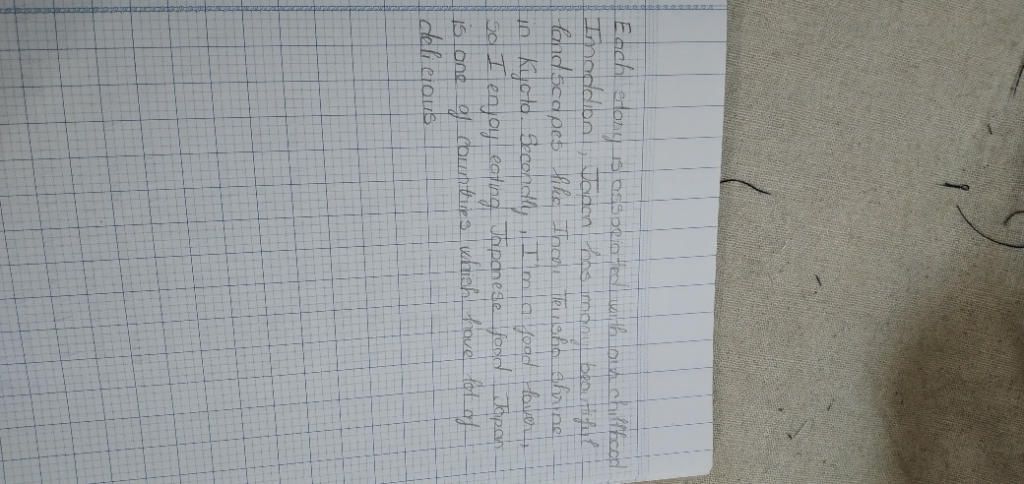 Each story is associated with our chillhood
Imaddion, Japan has many beautiful
landscapes like Inari Taisha shrine
in Kyoto Secondly, I'm a food lover,
so I enjoy eating Japanese food. Japan
is one of countries which have lot of
delicious